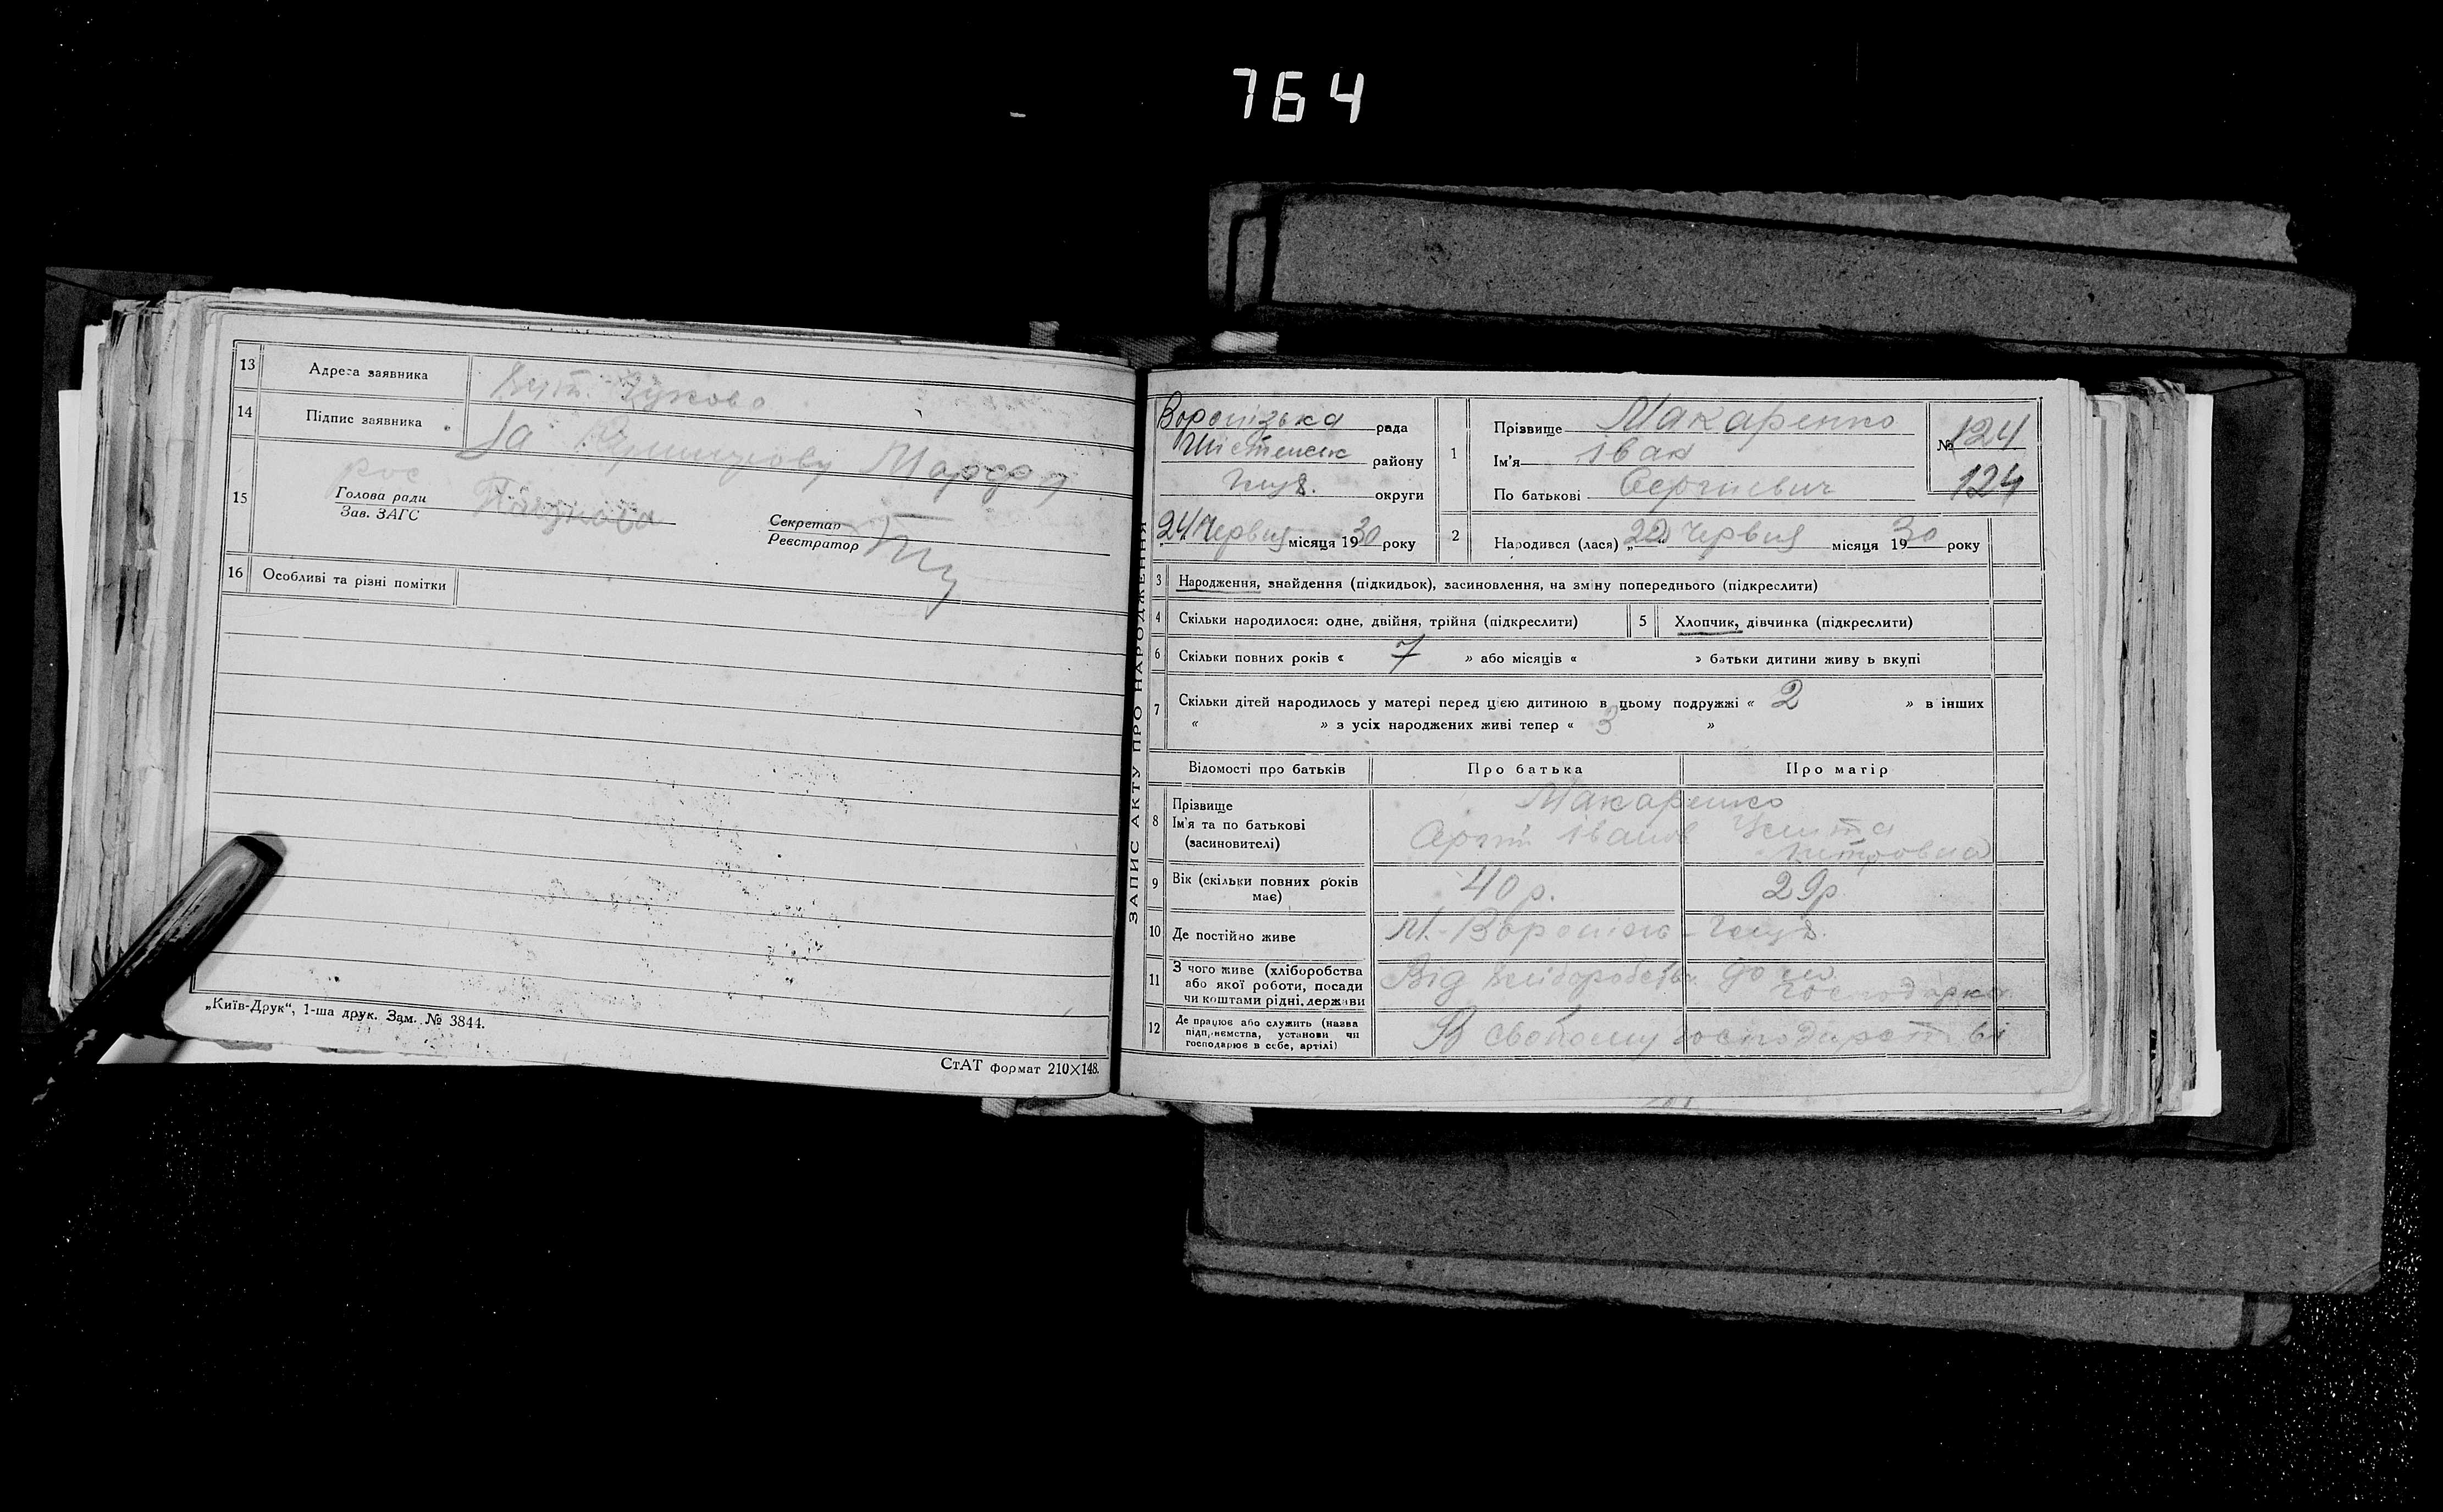 764
13 Адреса заявника
14 Підпис заявника
За
15 Голова ради
Зав. ЗАГС
Секретар
Реєстратор
16 Особливі та різні помітки
„Київ-Друк“, 1-ша друк. Зам. № 3844.
СтАТ формат 210×148.
ЗАПИС АКТУ ПРО НАРОДЖЕННЯ
Вороnізька рада
району
округи
24 Червня місяця 1930 року
1 Прізвище Макаренко
Ім'я Іван
По батькові Сергиевич
№ 124
124
2 Народився (лася) „22“ Червня місяця 1930 року
3 Народження, знайдення (підкидьок), засиновлення, на зміну попереднього (підкреслити)
4 Скільки народилося: одне, двійня, трійня (підкреслити) 5 Хлопчик, дівчинка (підкреслити)
6 Скільки повних років « 7 » або місяців « » батьки дитини живу ь вкупі
7 Скільки дітей народилось у матері перед цією дитиною в цьому подружжі « 2 » в інших
« » з усіх народжених живі тепер « 3 »
Відомості про батьків Про батька Про матір
8 Прізвище
Ім'я та по батькові
(засиновителі)
Макаренко
Іванов
Петровна
9 Вік (скільки повних років
має)
40 р. 29 р
10 Де постійно живе
м. Вороніж
11 З чого живе (хліборобства
або якої роботи, посади
чи коштами рідні, держави
Від хліборобства дом. господарка
12 Де працює або служить (назва
підприємства, установи чи
господарює в себе, артілі)
В своїому господарстві